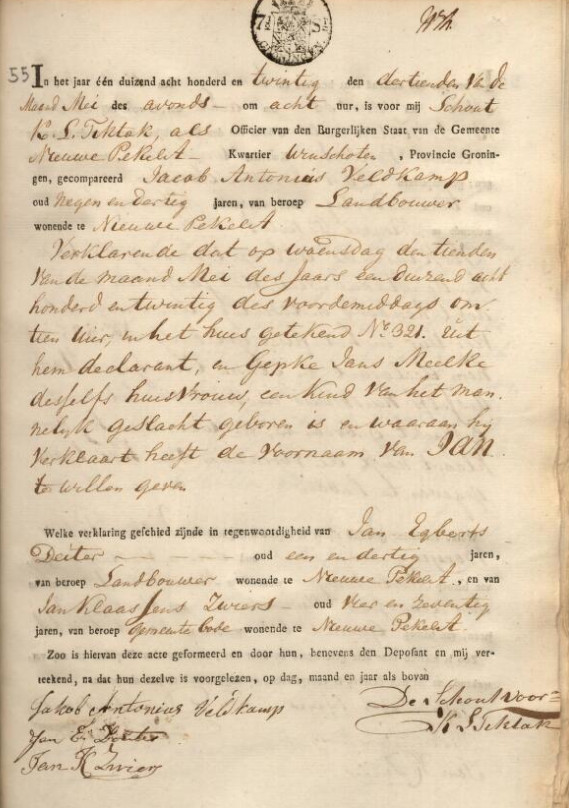 55
In het jaar één duizend acht honderd en twintig den dertienden van de
Maand Mei des avonds om acht uur, is voor mij Schout
K. S. Tiktak, als Officier van den Burgerlijken Staat van de Gemeente
Nieuwe Pekel A Kwartier Winschoten, Provincie Gronin-
gen, gecompareerd Jacob Antonius Veldkamp
oud Negen en dertig jaren, van beroep Landbouwer
wonende te Nieuwe Pekel A
Verklarende dat op woensdag den tienden
van de maand Mei des Jaars een duizend acht
honderd en twintig des voordemiddags om
tien uur, in het huis getekend No 321. Uit
hem declarant, en Gepke Jans Meelke
desselfs huisvrouw, een kind van het man-
nelyk geslacht geboren is en waaraan hy
verklaart heeft de voornaam van JAN
te willen geven
Welke verklaring geschied zijnde in tegenwoordigheid van Jan Egberts
Deiter oud een en dertig jaren,
van beroep Landbouwer wonende te Nieuwe Pekel A, en van
Jan Klaas Jans Zwiers oud Vier en Zeventig
jaren, van beroep Gemeente bode wonende te Nieuwe Pekel A.
Zoo is hiervan deze acte geformeerd en door hun, benevens den Deposant en mij ver-
teekend, na dat hun dezelve is voorgelezen, op dag, maand en jaar als boven
Jakob Antonius Veldkamp
De Schout voor=
K S Tiktak
Jan E Deiter
Jan K Zwiers